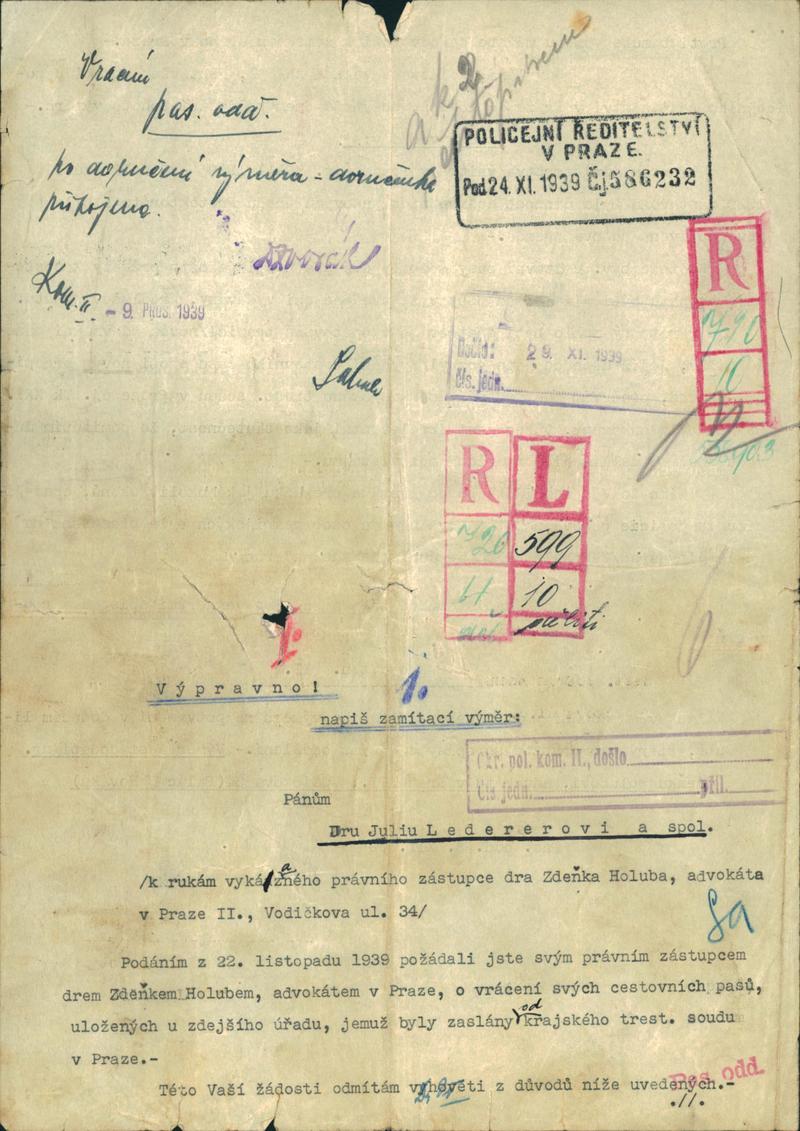 Vrácení
pas. odd.
po doručení výměra - doručenka
připojena.
a k
POLICEJNÍ ŘEDITELSTVÍ
V PRAZE.
Pod 24. XI. 1939 Čj 586232
Dvořák
Kom. II - 9 PROS. 1939
R
790
10
Došlo: 29. XI. 1939
čís. jedn.
R L
726 599
61 10
1.
Výpravno! 1.
napiš zamítací výměr:
Okr. pol. kom. II., došlo
Čís. jedn. příl.
Pánům
Dru Juliu Ledererovi a spol.
/k rukám vykázaného právního zástupce dra Zdeňka Holuba, advokáta
v Praze II., Vodičkova ul. 34/
Podáním z 22. listopadu 1939 požádali jste svým právním zástupcem
drem Zdeňkem Holubem, advokátem v Praze, o vrácení svých cestovních pasů,
uložených u zdejšího úřadu, jemuž byly zaslány od krajského trest. soudu
v Praze.-
Této Vaší žádosti odmítám vyhověti z důvodů níže uvedených.-
Pas. odd.
.//.